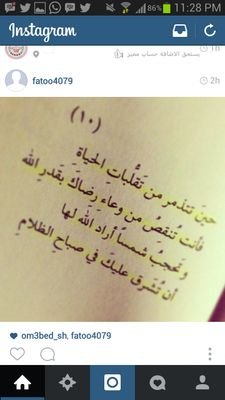 86% 11:28 PM
Instagram
يستحق الاضافه حساب مميز
1h
fatoo4079
2h
(١٠)
حين تتذمر من تقلبات الحياة
فأنت تنقص من وعاء رضاك بقدر الله
وتحجب شمسا أراد الله لها
أن تشرق عليك في صباح الظلام
om3bed_sh, fatoo4079